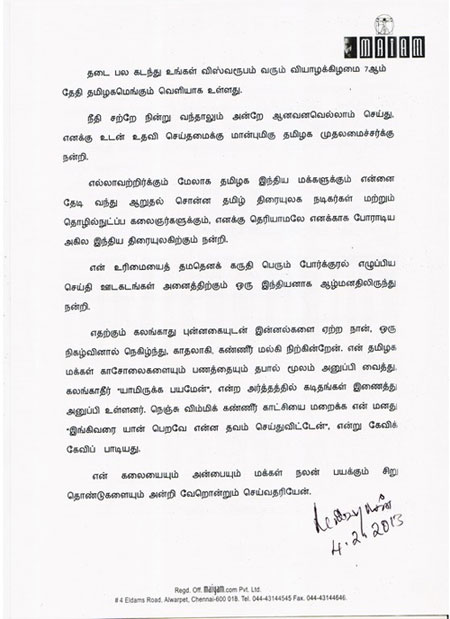 MAIAM
தடை பல கடந்து உங்கள் விஸ்வரூபம் வரும் வியாழக்கிழமை 7ஆம்
தேதி தமிழகமெங்கும் வெளியாக உள்ளது.
நீதி சற்றே நின்று வந்தாலும் அன்றே ஆனவனவெல்லாம் செய்து,
எனக்கு உடன் உதவி செய்தமைக்கு மான்புமிகு தமிழக முதலமைச்சர்க்கு
நன்றி.
எல்லாவற்றிர்க்கும் மேலாக தமிழக இந்திய மக்களுக்கும் என்னை
தேடி வந்து ஆறுதல் சொன்ன தமிழ் திரையுலக நடிகர்கள் மற்றும்
தொழில்நுட்ப கலைஞர்களுக்கும், எனக்கு தெரியாமலே எனக்காக போராடிய
அகில இந்திய திரையுலகிற்கும் நன்றி.
என் உரிமையைத் தமதெனக் கருதி பெரும் போர்க்குரல் எழுப்பிய
செய்தி ஊடகடங்கள் அனைத்திற்கும் ஒரு இந்தியனாக ஆழ்மனதிலிருந்து
நன்றி.
எதற்கும் கலங்காது புன்னகையுடன் இன்னல்களை ஏற்ற நான், ஒரு
நிகழ்வினால் நெகிழ்ந்து, காதலாகி, கண்ணீர் மல்கி நிற்கின்றேன். என் தமிழக
மக்கள் காசோலைகளையும் பணத்தையும் தபால் மூலம் அனுப்பி வைத்து,
கலங்காதீர் "யாமிருக்க பயமேன்", என்ற அர்த்தத்தில் கடிதங்கள் இணைத்து
அனுப்பி உள்ளனர். நெஞ்சு விம்மிக் கண்ணீர் காட்சியை மறைக்க என் மனது
"இங்கிவரை யான் பெறவே என்ன தவம் செய்துவிட்டேன்", என்று கேவிக்
கேவிப் பாடியது.
என் கலையையும் அன்பையும் மக்கள் நலன் பயக்கும் சிறு
தொண்டுகளையும் அன்றி வேறொன்றும் செய்வதரியேன்.
4.2.2013
Regd. Off. maiam.com Pvt. Ltd.
# 4 Eldams Road, Alwarpet, Chennai-600 018. Tel. 044-43144545 Fax. 044-43144646.